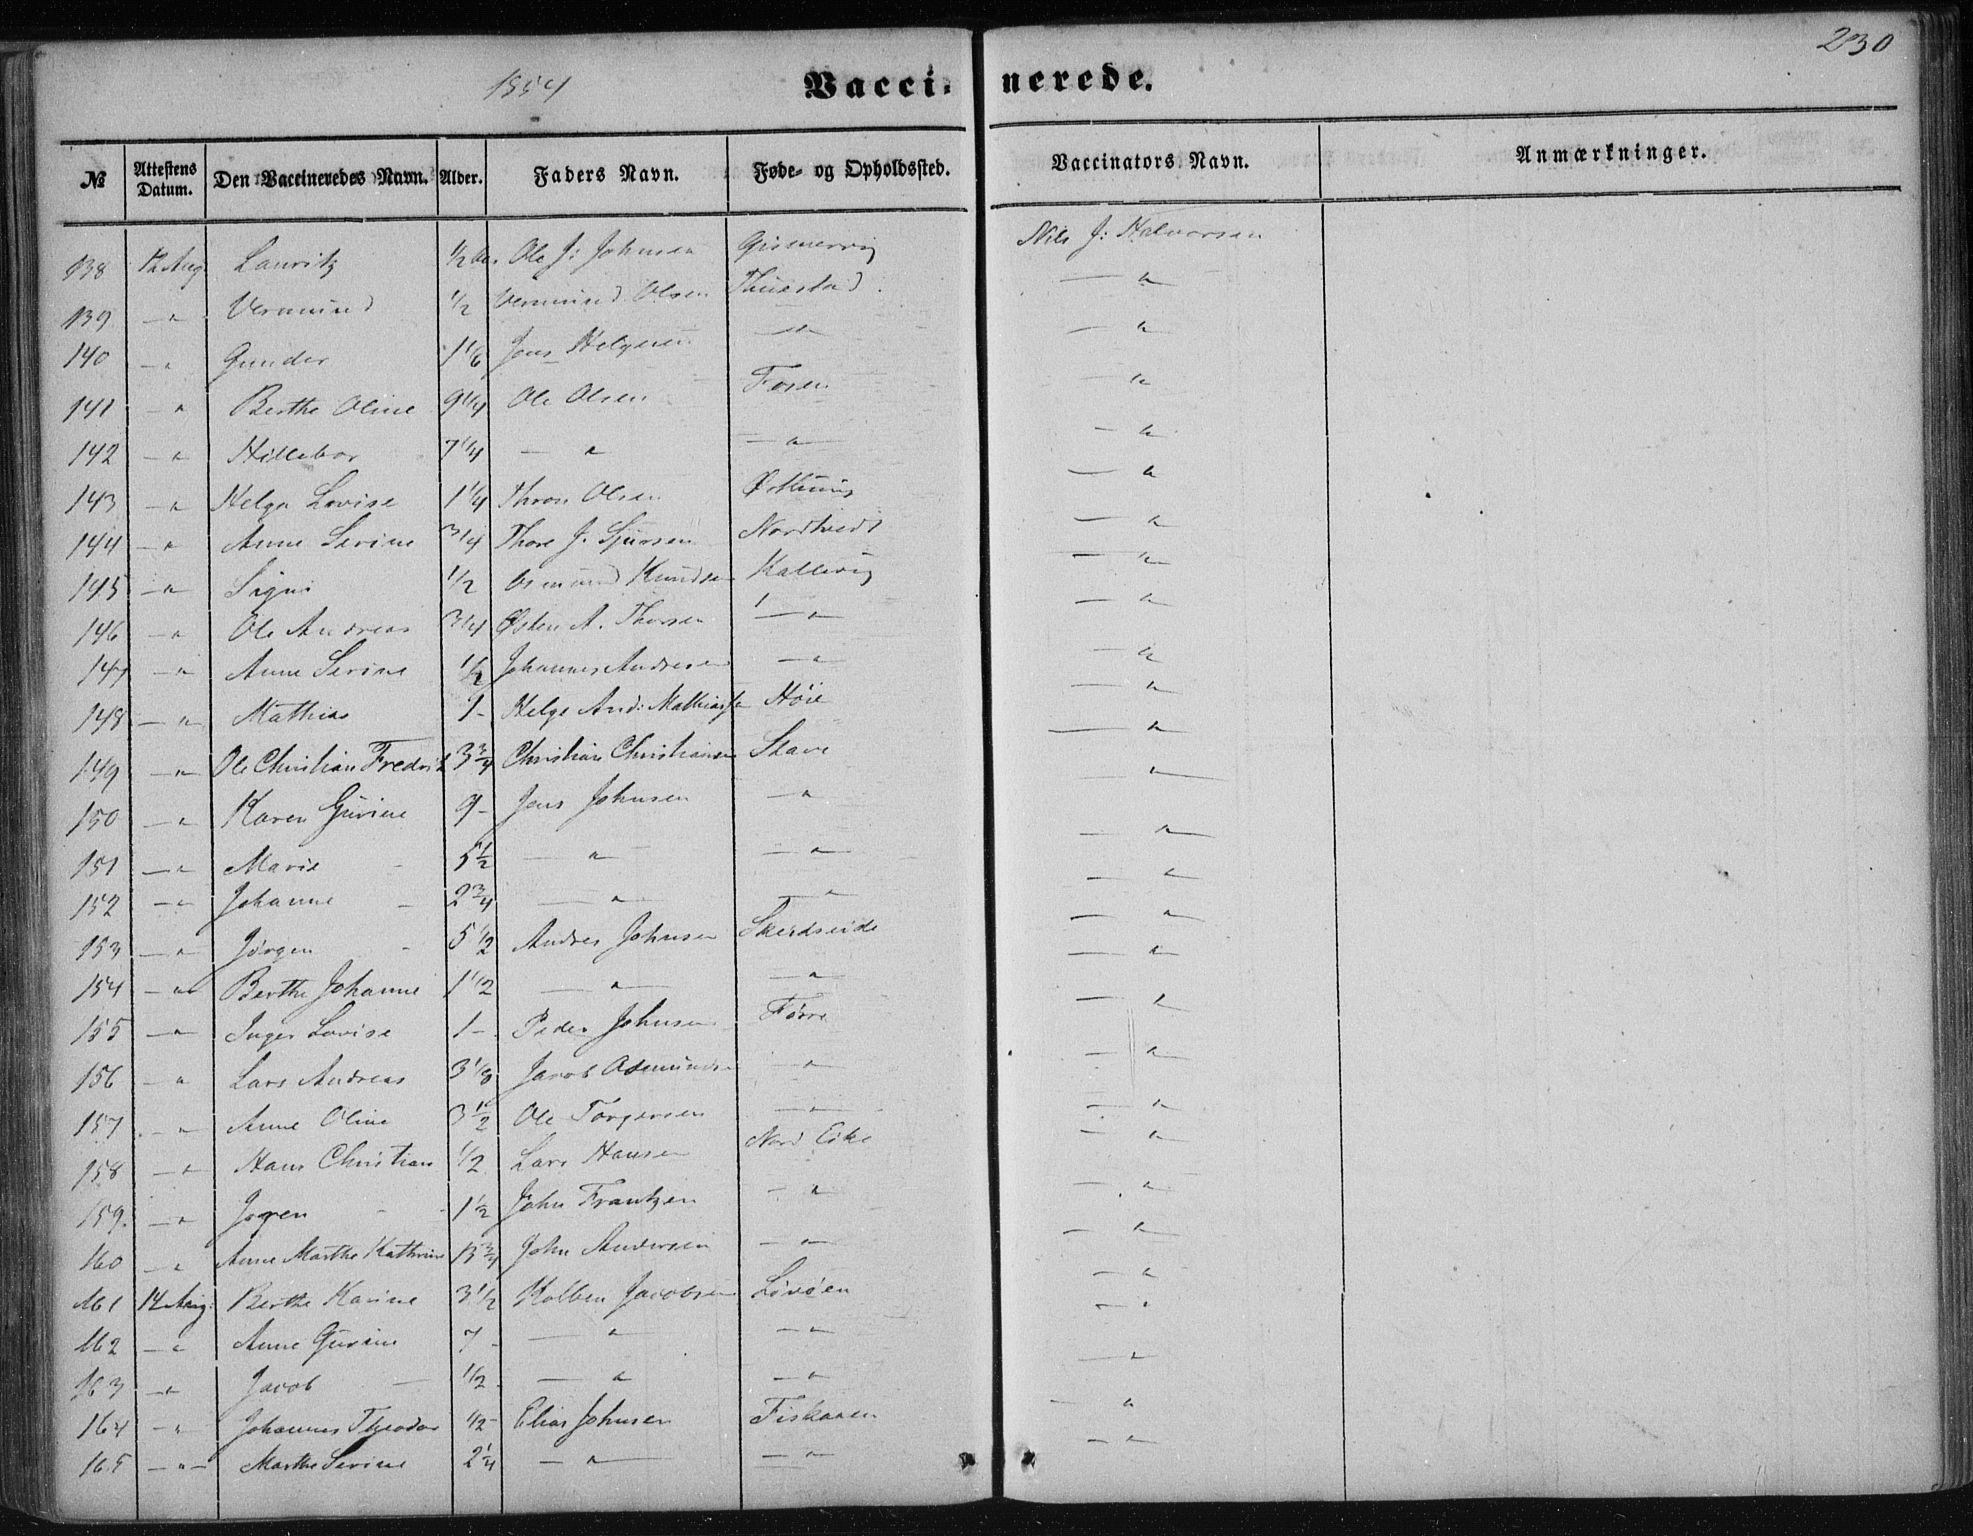 230
1854
Vaccinerede.
№ Attestens Datum. Den Vaccineredes Navn. Alder. Faders Navn. Føde- og Opholdssted. Vaccinators Navn. Anmærkninger.
138 12 Aug Lauritz 1/2 Ole J: Johnsen Gismervig Nils J: Halvorsen
139 — " Vermund 1/2 Vermund Olsen Tuestad — " —
140 — " Gunder 1 1/6 Jens Helgesen — " — — " —
141 — " Berthe Oline 9 1/4 Ole Olsen Fosen — " —
142 — " Hillebor 7 1/4 — " — " — — " —
143 — " Helga Lovise 1 1/4 Thron Olsen — " —
144 — " Anne Serine 3/4 Thore J. Sjursen Nordtvedt — " —
145 — " Signi 1/2 Osmund Knudsen Kallevig — " —
146 — " Ole Andreas 3/4 Østen A. Thorsen — " — — " —
147 — " Anne Serine 1/2 Johannes Andresen — " — " —
148 — " Mathias 1 - Helge And: Mathiassen Høie — " —
149 — " Ole Christian Fredrik 3 3/4 Christian Christiansen Stave — " —
150 — " Karen Gurine 9 - Jens Johnsen — " — " —
151 — " Marie 5 1/2 — " — — " — — " —
152 — " Johanne - 2 3/4 — " — — " — — " —
153 — " Jørgen - 5 1/2 Andres Johnsen Skeidseide — " —
154 — " Berthe Johanne 1 1/2 — " — — " — — " —
155 — " Inger Lovise 1 - Peder Johnsen Førre — " —
156 — " Lars Andreas 3 1/8 Jacob Asmunds — " — — " —
157 — " Anne Oline 3 1/2 Ole Torgersen — " — — " —
158 — " Hans Christian 1/2 Lars Hansen Nord Eike — " —
159. — " Jørgen - 1 1/2 John Frantzen — " — " —
160 — " Anne Marthe Kathrine 13 3/4 John Andersen — " — — " —
161 14 Aug: Berthe Karine 3 1/2 Kolben Jacobsen Løvøen — " —
162 — " Anne Gurine 7 - — " — " — — " —
163 — " Jacob — 1/2 — " — " — — " —
164 — " Johannes Theodor 1/2 - Elias Johnsen Fiskaaen — " —
165 — " — Marthe Serine 2 1/4 — " — — " — — " —